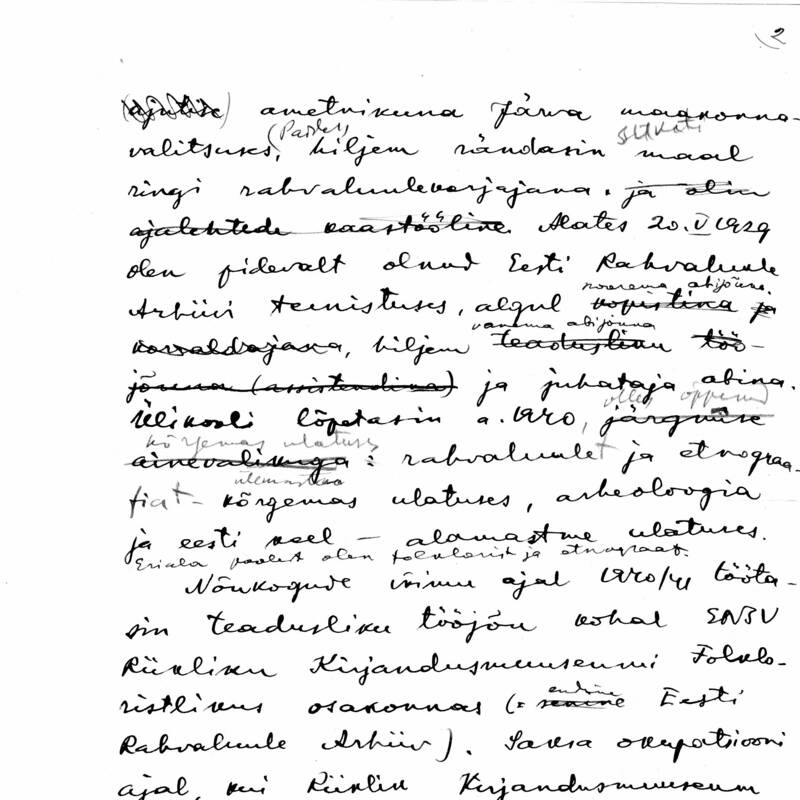 2
ametnikuna Järva maakonna-
(Paides)
valitsuses, hiljem rändasin maal
ringi rahvaluulekorjajana. ja olin
ajalehtede kaastööline. Alates 20. V 1929
olen pidevalt olnud Eesti Rahvaluule
noorema abijõuna.
Arhiivi teenistuses, algul kopistina ja
vanema abijõuna
korraldajana, hiljem teadusliku töö-
jõuna (assistendina) ja juhataja abina.
olles õppinud
Ülikooli lõpetasin a. 1940, järgmise
kõrgemas ulatuses
ainevalikuga: rahvaluulet ja etnograa-
ülemastme
fiat – kõrgemas ulatuses, arheoloogia
ja eesti keel – alamastme ulatuses.
Eriala poolest olen folklorist ja etnograaf.
Nõukogude võimu ajal 1940/41 tööta-
sin teadusliku tööjõu kohal ENSV
Riikliku Kirjandusmuuseumi Folklo-
ristlikus osakonnas (= senine Eesti
endine
Rahvaluule Arhiiv). Saksa okupatsiooni
ajal, kui Riiklik Kirjandusmuuseum